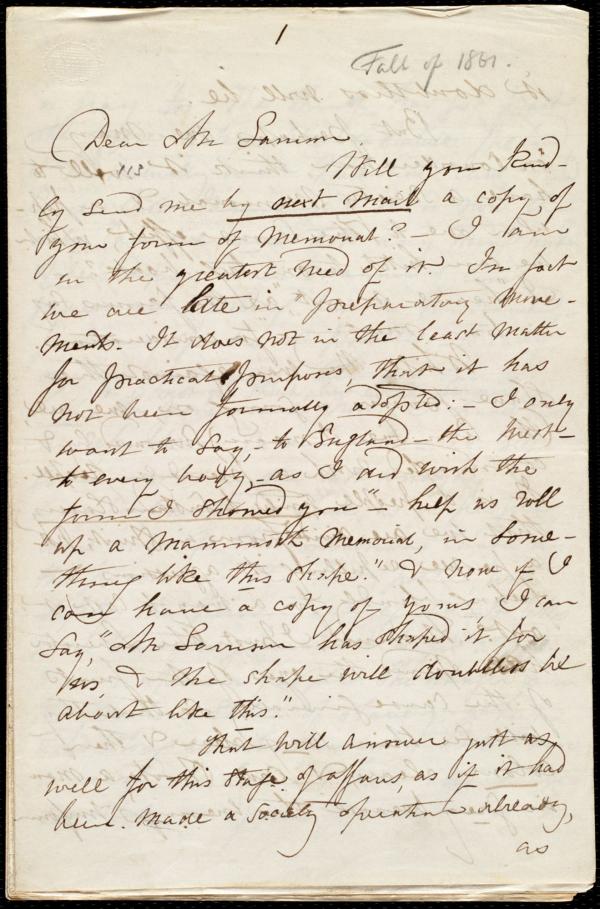 1
Fall of 1861.
Dear Mr Garrison.
Will you kind-
ly send me by next mail a copy of
your form of Memorial? — I am
in the greatest need of it. In fact
we are late in preparatory move-
ments. It does not in the least matter
for practical purposes, that it has
not been formally adopted: — I only
want to say, — to England — the West —
to every body, — as I did with the
form I showed you — "help us roll
up a Mammoth Memorial, in some-
thing like this shape." & now if I
can have a copy of yours I can
say, "Mr Garrison has shaped it for
us, & the shape will doubtless be
about like this."
That will answer just as
well for this stage of affairs, as if it had
been made a Society operation already,
as